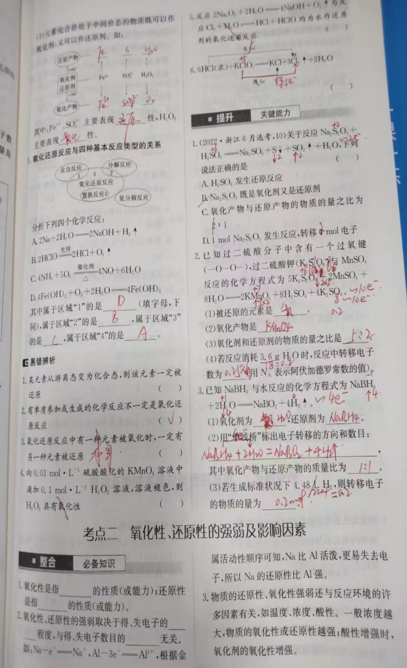 (3)元素化合价处于中间价态的物质既可以作
氧化剂,又可以作还原剂。如:
其中,Fe²⁺、SO₃²⁻主要表现还原性,H₂O₂
主要表现氧化性。
3.氧化还原反应与四种基本反应类型的关系
化合反应
分解反应
氧化还原反应
置换反应
复分解反应
分析下列四个化学反应:
A.2Na+2H₂O══2NaOH+H₂↑
B.2HClO══2HCl+O₂↑
光照
C.4NH₃+5O₂══4NO+6H₂O
催化剂
D.4Fe(OH)₂+O₂+2H₂O══4Fe(OH)₃
其中属于区域“1”的是 D (填字母,下
同),属于区域“2”的是 B ,属于区域“3”
的是 C ,属于区域“4”的是 A 。
易错辨析
1.某元素从游离态变为化合态,则该元素一定被
还原 ( )
2.有单质参加或生成的化学反应不一定是氧化还
原反应 (√)
3.氧化还原反应中有一种元素被氧化时,一定有
另一种元素被还原 ( )
4.向0.01 mol·L⁻¹硫酸酸化的KMnO₄溶液中
滴加0.1 mol·L⁻¹ H₂O₂溶液,溶液褪色,则
H₂O₂具有氧化性 ( )
5.反应2Na₂O₂+2H₂O══4NaOH+O₂↑与反
应Cl₂+H₂O══HCl+HClO均为水作还原
剂的氧化还原反应
6.6HCl(浓)+KClO₃══KCl+3Cl₂↑+3H₂O
提升 关键能力
1.(2022·浙江6月选考,10)关于反应Na₂S₂O₃+
H₂SO₄══Na₂SO₄+S↓+SO₂↑+H₂O,下列
说法正确的是
A.H₂SO₄发生还原反应
B.Na₂S₂O₃既是氧化剂又是还原剂
C.氧化产物与还原产物的物质的量之比为
2:1
D.1 mol Na₂S₂O₃发生反应,转移4 mol电子
2.已知过二硫酸分子中含有一个过氧键
(—O—O—),过二硫酸钾(K₂S₂O₈)与MnSO₄
反应的化学方程式为5K₂S₂O₈+2MnSO₄+
8H₂O══2KMnO₄+8H₂SO₄+4K₂SO₄
(1)被还原的元素是
(2)氧化产物是 KMnO₄
(3)氧化剂和还原剂的物质的量之比是 5:2
(4)若反应消耗3.6 g H₂O时,反应中转移电子
数为 (用N_A表示阿伏加德罗常数的值)。
3.已知NaBH₄与水反应的化学方程式为NaBH₄
+2H₂O══NaBO₂+4H₂↑。
(1)氧化剂为 H₂O ,还原剂为 NaBH₄
(2)用“单线桥”标出电子转移的方向和数目:
NaBH₄+2H₂O══NaBO₂+4H₂↑
其中氧化产物与还原产物的质量比为 1:1
(3)若生成标准状况下4.48 L H₂,则转移电子
的物质的量为 0.2mol
考点二 氧化性、还原性的强弱及影响因素
整合 必备知识
1.氧化性是指 的性质(或能力);还原性
是指 的性质(或能力)。
2.氧化性、还原性的强弱取决于得、失电子的
程度,与得、失电子数目的 无关。
如:Na−e⁻══Na⁺,Al−3e⁻══Al³⁺,根据金
属活动性顺序可知,Na比Al活泼,更易失去电
子,所以Na的还原性比Al强。
3.物质的还原性、氧化性强弱还与反应环境的许
多因素有关,如温度、浓度、酸性。一般浓度越
大,物质的氧化性或还原性越强;酸性增强时,
氧化剂的氧化性增强。